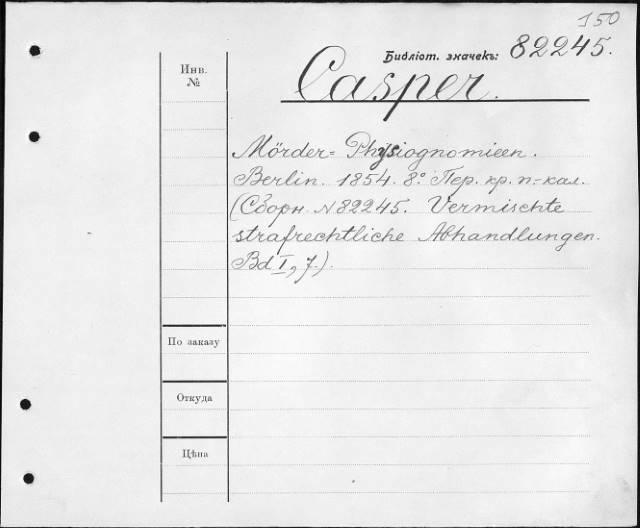 150
Библіот. значекъ: 82245.
Инв.
№
Casper.
Mörder= Physiognomieen.
Berlin. 1854. 8° Пер. кр. п.-кал.
(Сборн. № 82245. Vermischte
strafrechtliche Abhandlungen.
Bd I, 7.).
По заказу
Откуда
Цѣна